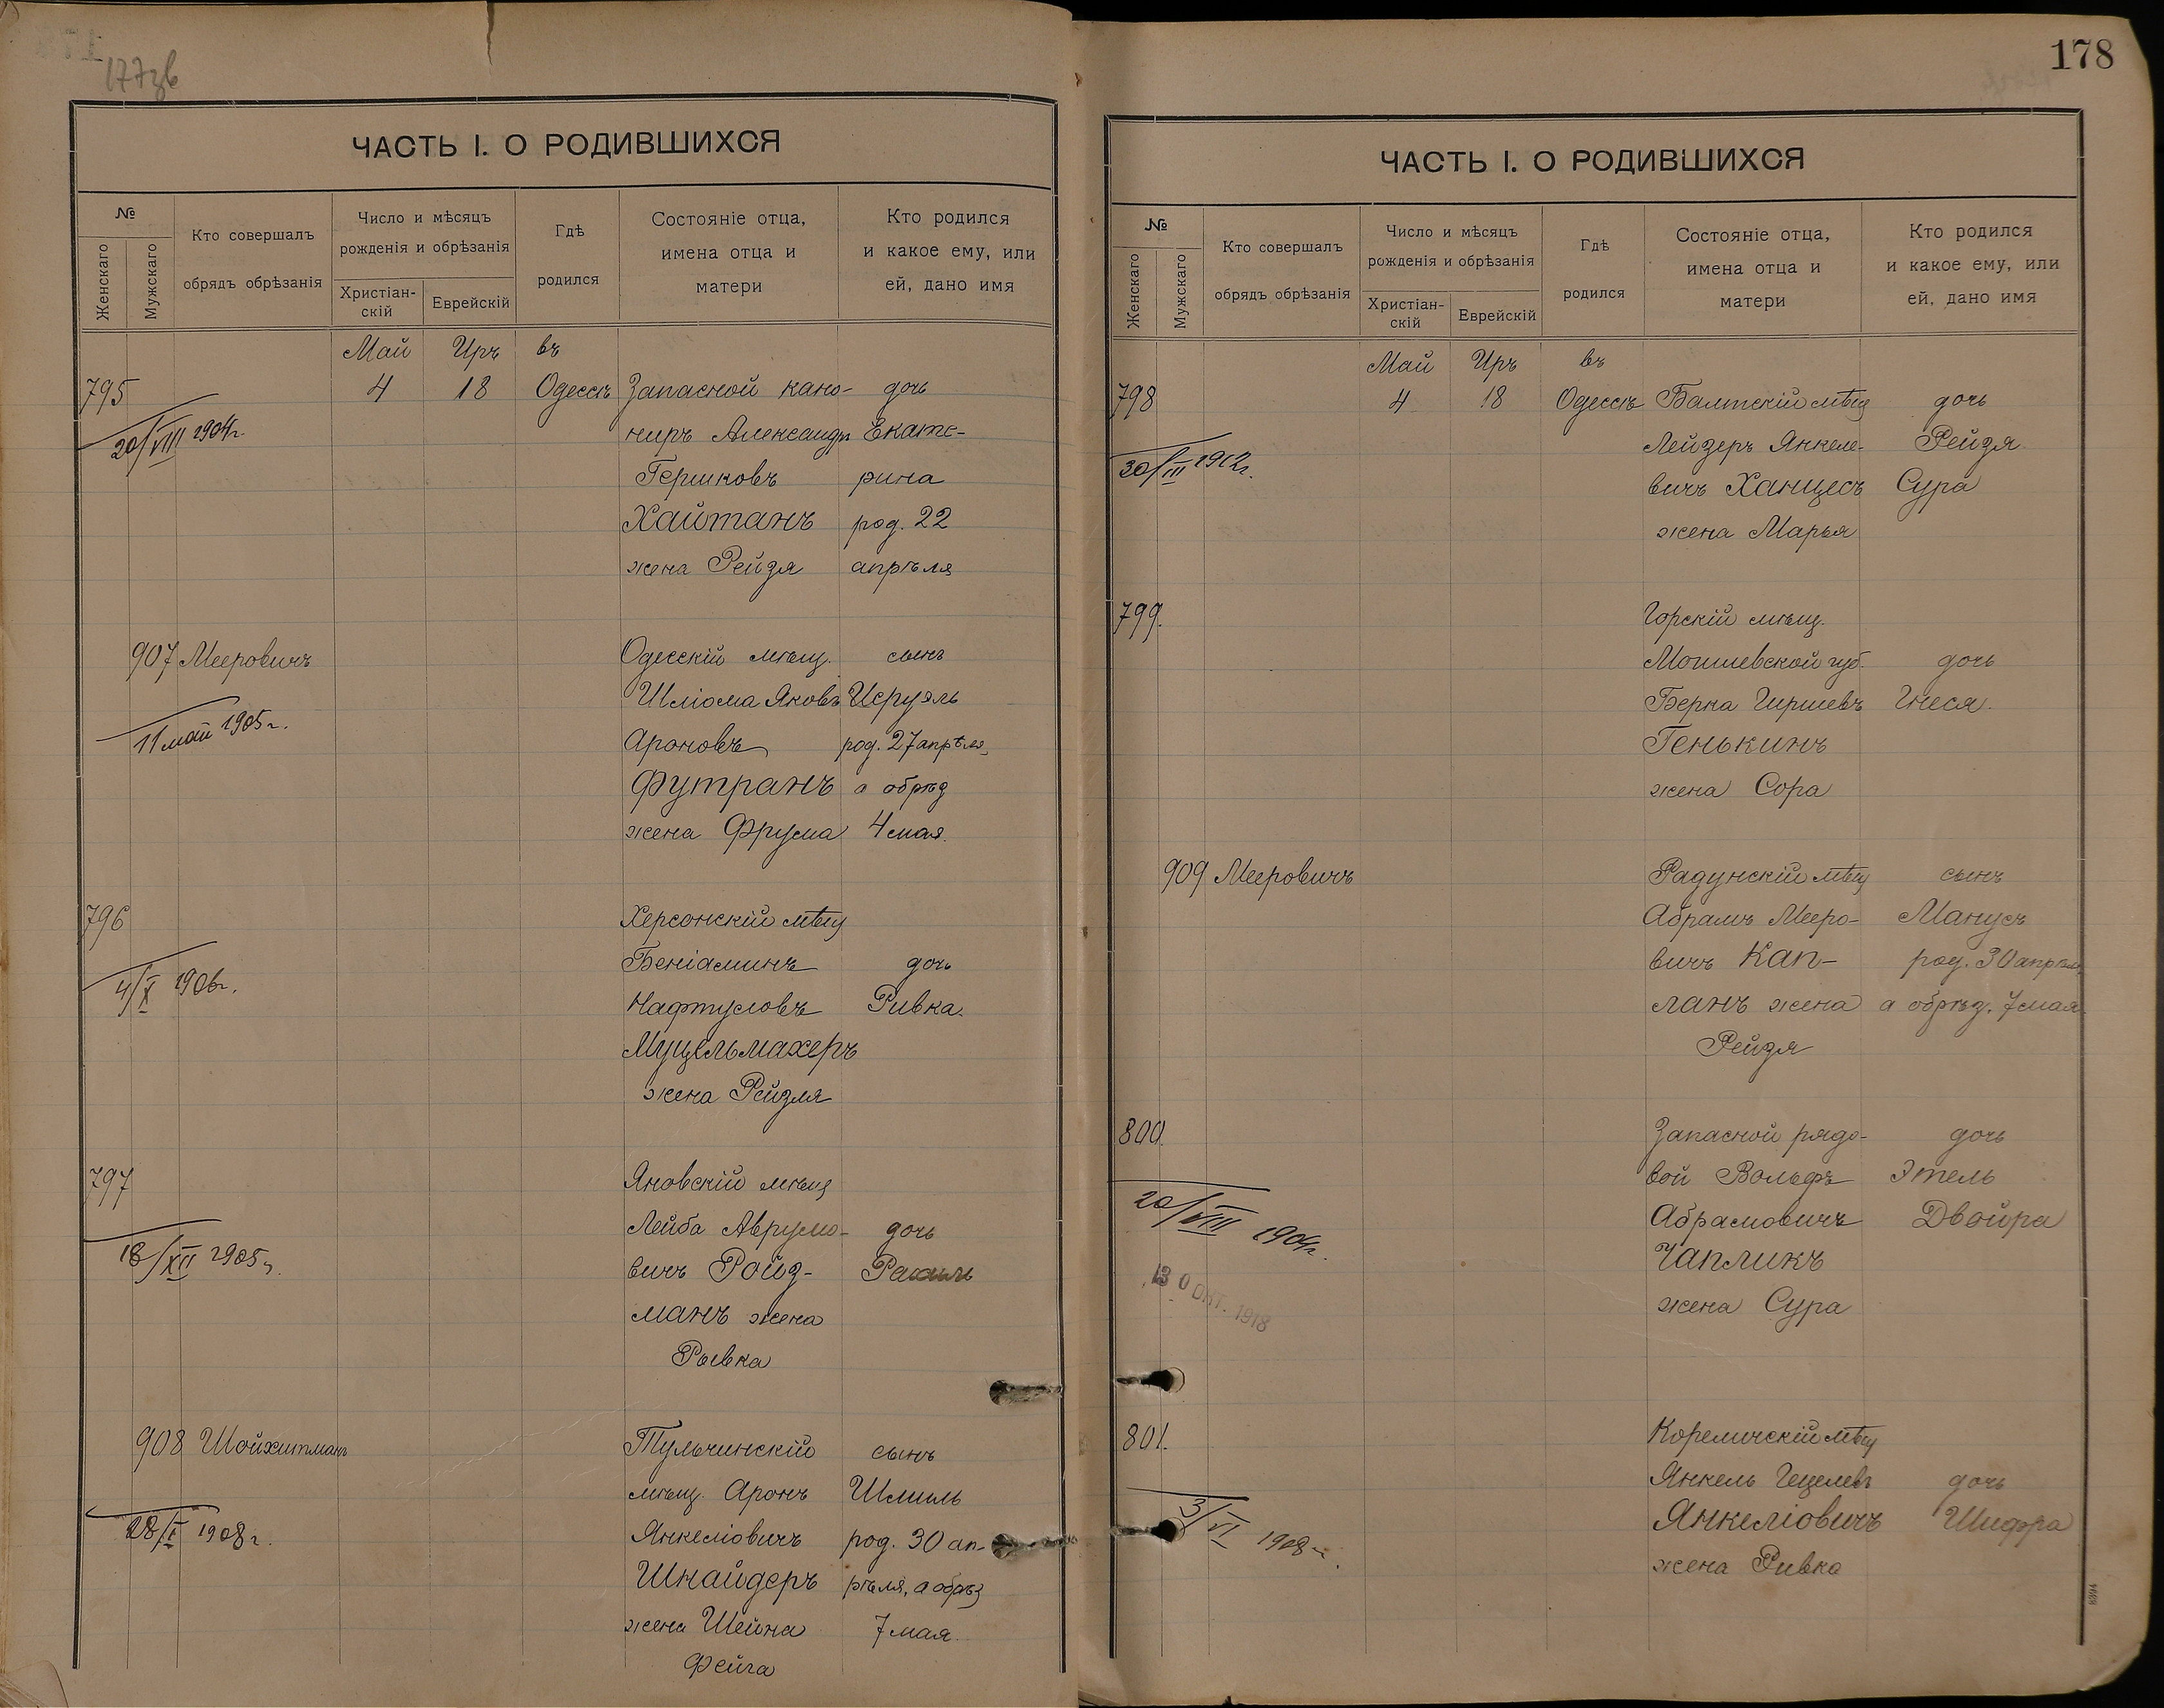 177зв
ЧАСТЬ I. О РОДИВШИХСЯ
№
Женскаго
Мужскаго
Кто совершалъ
обрядъ обрѣзанія
Число и мѣсяцъ
рожденія и обрѣзанія
Христіан-
скій
Еврейскій
Гдѣ
родился
Состояніе отца,
имена отца и
матери
Кто родился
и какое ему, или
ей, дано имя
Май Иръ въ
795 4 18 Одессѣ Запасной кано- дочь
20/VIII 1904г. ниръ Александръ Екате-
Гершковъ рина
Хайтанъ род. 22
жена Рейзя апрѣля
907 Мееровичъ Одесскій мѣщ. сынъ
Шліома Яковъ Исруэль
11 май 1905г. Ароновъ род. 27 апрѣля,
Футранъ а обрѣз
жена Фрума 4 мая.
796 Херсонскій мѣщ
Беніаминъ дочь
4/X 1906г. Нафтуловъ Ривка.
Муцельмахеръ
жена Рейзля
797 Яновскій мѣщ
Лейба Аврумо- дочь
18/XII 1905г. вичъ Ройз- Рахиль
манъ жена
Рывка
908 Шойхитманъ Тульчинскій сынъ
мѣщ. Аронъ Шмиль
28/I 1908г. Янкеліовичъ род. 30 ап-
Шнайдеръ рѣля, а обрѣз
жена Шейна 7 мая.
Фейга
178
ЧАСТЬ I. О РОДИВШИХСЯ
№
Женскаго
Мужскаго
Кто совершалъ
обрядъ обрѣзанія
Число и мѣсяцъ
рожденія и обрѣзанія
Христіан-
скій
Еврейскій
Гдѣ
родился
Состояніе отца,
имена отца и
матери
Кто родился
и какое ему, или
ей, дано имя
Май Иръ въ
798 4 18 Одессѣ Балтскій мѣщ дочь
Лейзеръ Янкеле- Рейзя
30/III 1912г. вичъ Ханцесъ Сура
жена Марья
799. Горскій мѣщ.
Могилевской губ. дочь
Берка Гиршевъ Гнеся.
Генькинъ
жена Сора
909 Мееровичъ Радунскій мѣщ сынъ
Абрамъ Мееро- Манусъ
вичъ Кап- род. 30 апрѣля
ланъ жена а обрѣз. 7 мая.
Рейзя
800. Запасной рядо- дочь
вой Вольфъ Этель
20/VIII 1904г. Абрамовичъ Двойра
Чапликъ
30 ОКТ. 1918 жена Сура
801. Кореличскій мѣщ
Янкель Гецелевъ дочь
3/VI 1908г. Янкеліовичъ Шифра
жена Ривка
8394